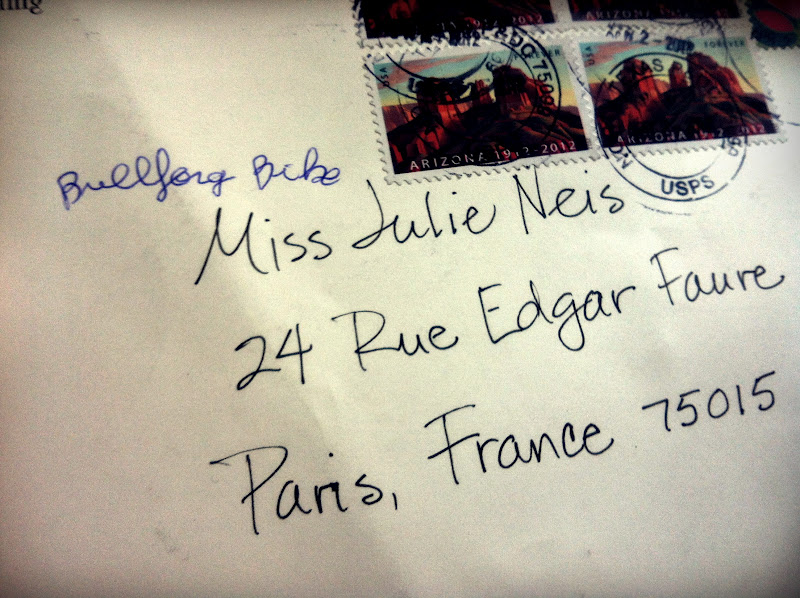 ARIZONA 1912-2012
USA FOREVER
ARIZONA 1912-2012
USA FOREVER
ARIZONA 1912-2012
TEXAS
USPS
Miss Julie Neis
24 Rue Edgar Faure
Paris, France 75015